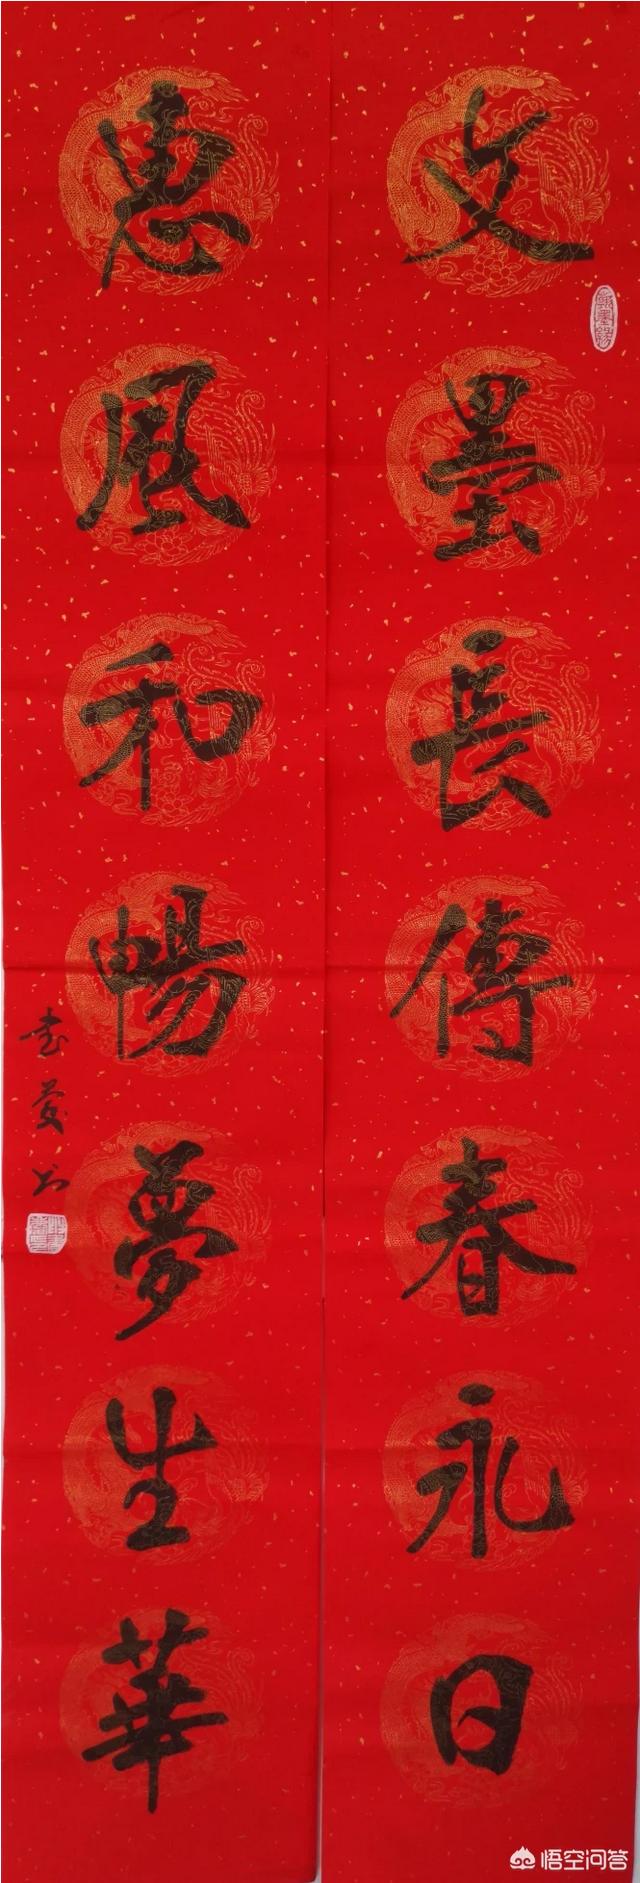 文墨長傳春永日
惠風和暢夢生華
书
悟空问答